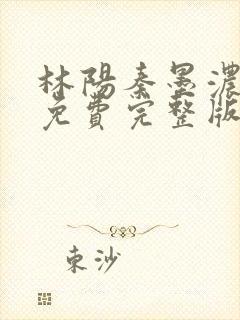 林陽秦墨濃
免費完整版
東沙